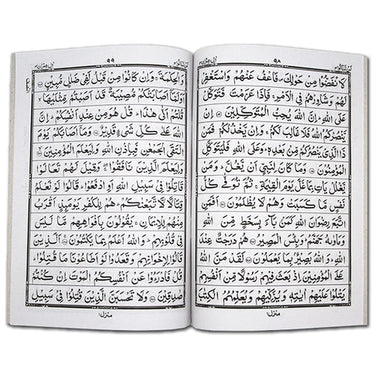 ٩٨
لَانْفَضُّوْا مِنْ حَوْلِكَ فَاعْفُ عَنْهُمْ وَاسْتَغْفِرْ
لَهُمْ وَشَاوِرْهُمْ فِي الْاَمْرِ فَاِذَا عَزَمْتَ فَتَوَكَّلْ
عَلَى اللّٰهِ اِنَّ اللّٰهَ يُحِبُّ الْمُتَوَكِّلِيْنَ اِنْ
يَّنْصُرْكُمُ اللّٰهُ فَلَا غَالِبَ لَكُمْ وَاِنْ يَّخْذُلْكُمْ فَمَنْ
ذَا الَّذِيْ يَنْصُرُكُمْ مِّنْۢ بَعْدِهٖ وَعَلَى اللّٰهِ فَلْيَتَوَكَّلِ
الْمُؤْمِنُوْنَ وَمَا كَانَ لِنَبِيٍّ اَنْ يَّغُلَّ وَمَنْ
يَّغْلُلْ يَاْتِ بِمَا غَلَّ يَوْمَ الْقِيٰمَةِ ثُمَّ تُوَفّٰى كُلُّ
نَفْسٍ مَّا كَسَبَتْ وَهُمْ لَا يُظْلَمُوْنَ اَفَمَنِ
اتَّبَعَ رِضْوَانَ اللّٰهِ كَمَنْۢ بَآءَ بِسَخَطٍ مِّنَ اللّٰهِ
وَمَاْوٰىهُ جَهَنَّمُ وَبِئْسَ الْمَصِيْرُ هُمْ دَرَجٰتٌ عِنْدَ
اللّٰهِ وَاللّٰهُ بَصِيْرٌۢ بِمَا يَعْمَلُوْنَ لَقَدْ مَنَّ اللّٰهُ
عَلَى الْمُؤْمِنِيْنَ اِذْ بَعَثَ فِيْهِمْ رَسُوْلًا مِّنْ اَنْفُسِهِمْ
يَتْلُوْا عَلَيْهِمْ اٰيٰتِهٖ وَيُزَكِّيْهِمْ وَيُعَلِّمُهُمُ الْكِتٰبَ
منزل
٩٩
وَالْحِكْمَةَ وَاِنْ كَانُوْا مِنْ قَبْلُ لَفِيْ ضَلٰلٍ مُّبِيْنٍ
اَوَلَمَّآ اَصَابَتْكُمْ مُّصِيْبَةٌ قَدْ اَصَبْتُمْ مِّثْلَيْهَا
قُلْتُمْ اَنّٰى هٰذَا قُلْ هُوَ مِنْ عِنْدِ اَنْفُسِكُمْ اِنَّ
اللّٰهَ عَلٰى كُلِّ شَيْءٍ قَدِيْرٌ وَمَآ اَصَابَكُمْ يَوْمَ
الْتَقَى الْجَمْعٰنِ فَبِاِذْنِ اللّٰهِ وَلِيَعْلَمَ الْمُؤْمِنِيْنَ
وَلِيَعْلَمَ الَّذِيْنَ نَافَقُوْا وَقِيْلَ لَهُمْ تَعَالَوْا
قَاتِلُوْا فِيْ سَبِيْلِ اللّٰهِ اَوِ ادْفَعُوْا قَالُوْا لَوْ نَعْلَمُ
قِتَالًا لَّاتَّبَعْنٰكُمْ هُمْ لِلْكُفْرِ يَوْمَئِذٍ اَقْرَبُ
مِنْهُمْ لِلْاِيْمَانِ يَقُوْلُوْنَ بِاَفْوَاهِهِمْ مَّا لَيْسَ
فِيْ قُلُوْبِهِمْ وَاللّٰهُ اَعْلَمُ بِمَا يَكْتُمُوْنَ اَلَّذِيْنَ
قَالُوْا لِاِخْوَانِهِمْ وَقَعَدُوْا لَوْ اَطَاعُوْنَا مَا قُتِلُوْا
قُلْ فَادْرَءُوْا عَنْ اَنْفُسِكُمُ الْمَوْتَ اِنْ كُنْتُمْ
صٰدِقِيْنَ وَلَا تَحْسَبَنَّ الَّذِيْنَ قُتِلُوْا فِيْ سَبِيْلِ
منزل